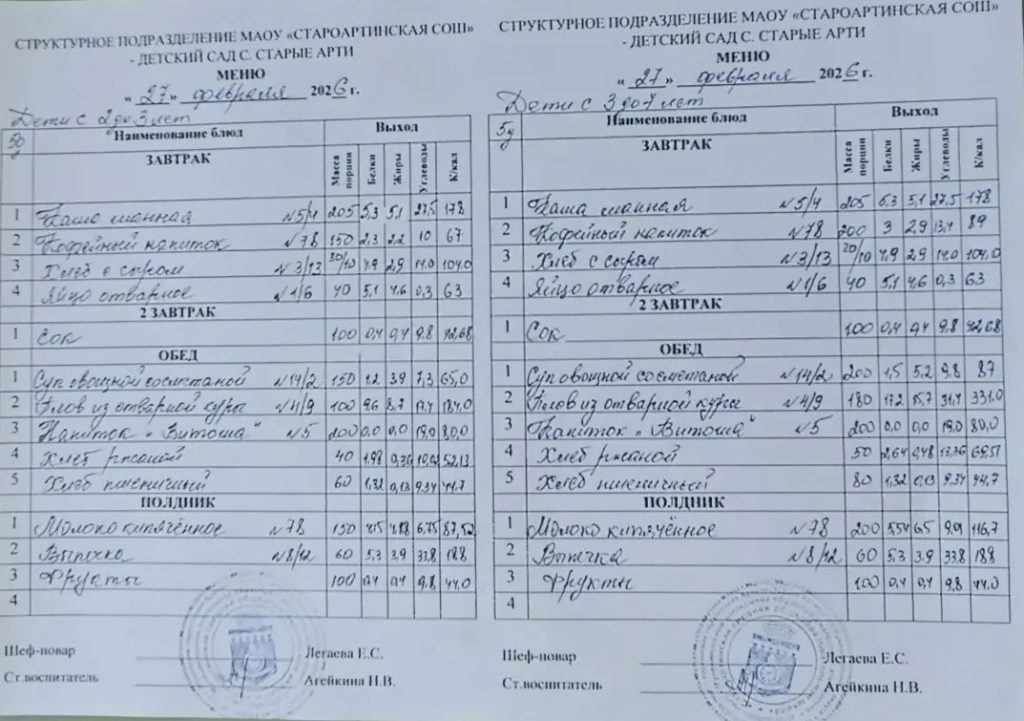 СТРУКТУРНОЕ ПОДРАЗДЕЛЕНИЕ МАОУ «СТАРОАРТИНСКАЯ СОШ»
- ДЕТСКИЙ САД С. СТАРЫЕ АРТИ
МЕНЮ
« 27 » февраля 2026 г.
Дети с 2 до 3 лет
5д Наименование блюд Выход
ЗАВТРАК Масса порции Белки Жиры Углеводы К/кал
1 Каша манная №5/4 205 5,3 5,1 27,5 178
2 Кофейный напиток №78 150 2,3 2,2 10 67
3 Хлеб с сыром №3/13 30/10 4,9 2,9 14,0 104,0
4 Яйцо отварное №1/6 40 5,1 4,6 0,3 63
2 ЗАВТРАК
1 Сок 100 0,4 0,4 9,8 42,68
ОБЕД
1 Суп овощной со сметаной №14/2 150 1,2 3,9 7,3 65,0
2 Плов из отварной куры №4/9 100 9,6 8,7 17,4 184,0
3 Напиток „Витоша" №5 200 0,0 0,0 19,0 80,0
4 Хлеб ржаной 40 1,98 0,36 10,02 52,13
5 Хлеб пшеничный 60 1,32 0,13 9,34 44,7
ПОЛДНИК
1 Молоко кипячённое №78 150 4,15 4,88 6,75 87,52
2 Выпечка №8/12 60 5,3 3,9 33,8 188
3 Фрукты 100 0,4 0,4 9,8 44,0
4
Шеф-повар Легаева Е.С.
Ст.воспитатель Агейкина Н.В.
СТРУКТУРНОЕ ПОДРАЗДЕЛЕНИЕ МАОУ «СТАРОАРТИНСКАЯ СОШ»
- ДЕТСКИЙ САД С. СТАРЫЕ АРТИ
МЕНЮ
« 27 » февраля 2026 г.
Дети с 3 до 7 лет
5д Наименование блюд Выход
ЗАВТРАК Масса порции Белки Жиры Углеводы К/кал
1 Каша манная №5/4 205 5,3 5,1 27,5 178
2 Кофейный напиток №78 200 3 2,9 13,4 89
3 Хлеб с сыром №3/13 30/10 4,9 2,9 14,0 104,0
4 Яйцо отварное №1/6 40 5,1 4,6 0,3 63
2 ЗАВТРАК
1 Сок 100 0,4 0,4 9,8 42,68
ОБЕД
1 Суп овощной со сметаной №14/2 200 1,5 5,2 9,8 87
2 Плов из отварной куры №4/9 180 17,2 15,7 31,4 331,0
3 Напиток „Витоша" №5 200 0,0 0,0 19,0 80,0
4 Хлеб ржаной 50 2,64 0,48 13,36 69,51
5 Хлеб пшеничный 80 1,32 0,13 9,34 44,7
ПОЛДНИК
1 Молоко кипячённое №78 200 5,54 6,5 9,01 116,7
2 Выпечка №8/12 60 5,3 3,9 33,8 188
3 Фрукты 100 0,4 0,4 9,8 44,0
4
Шеф-повар Легаева Е.С.
Ст.воспитатель Агейкина Н.В.